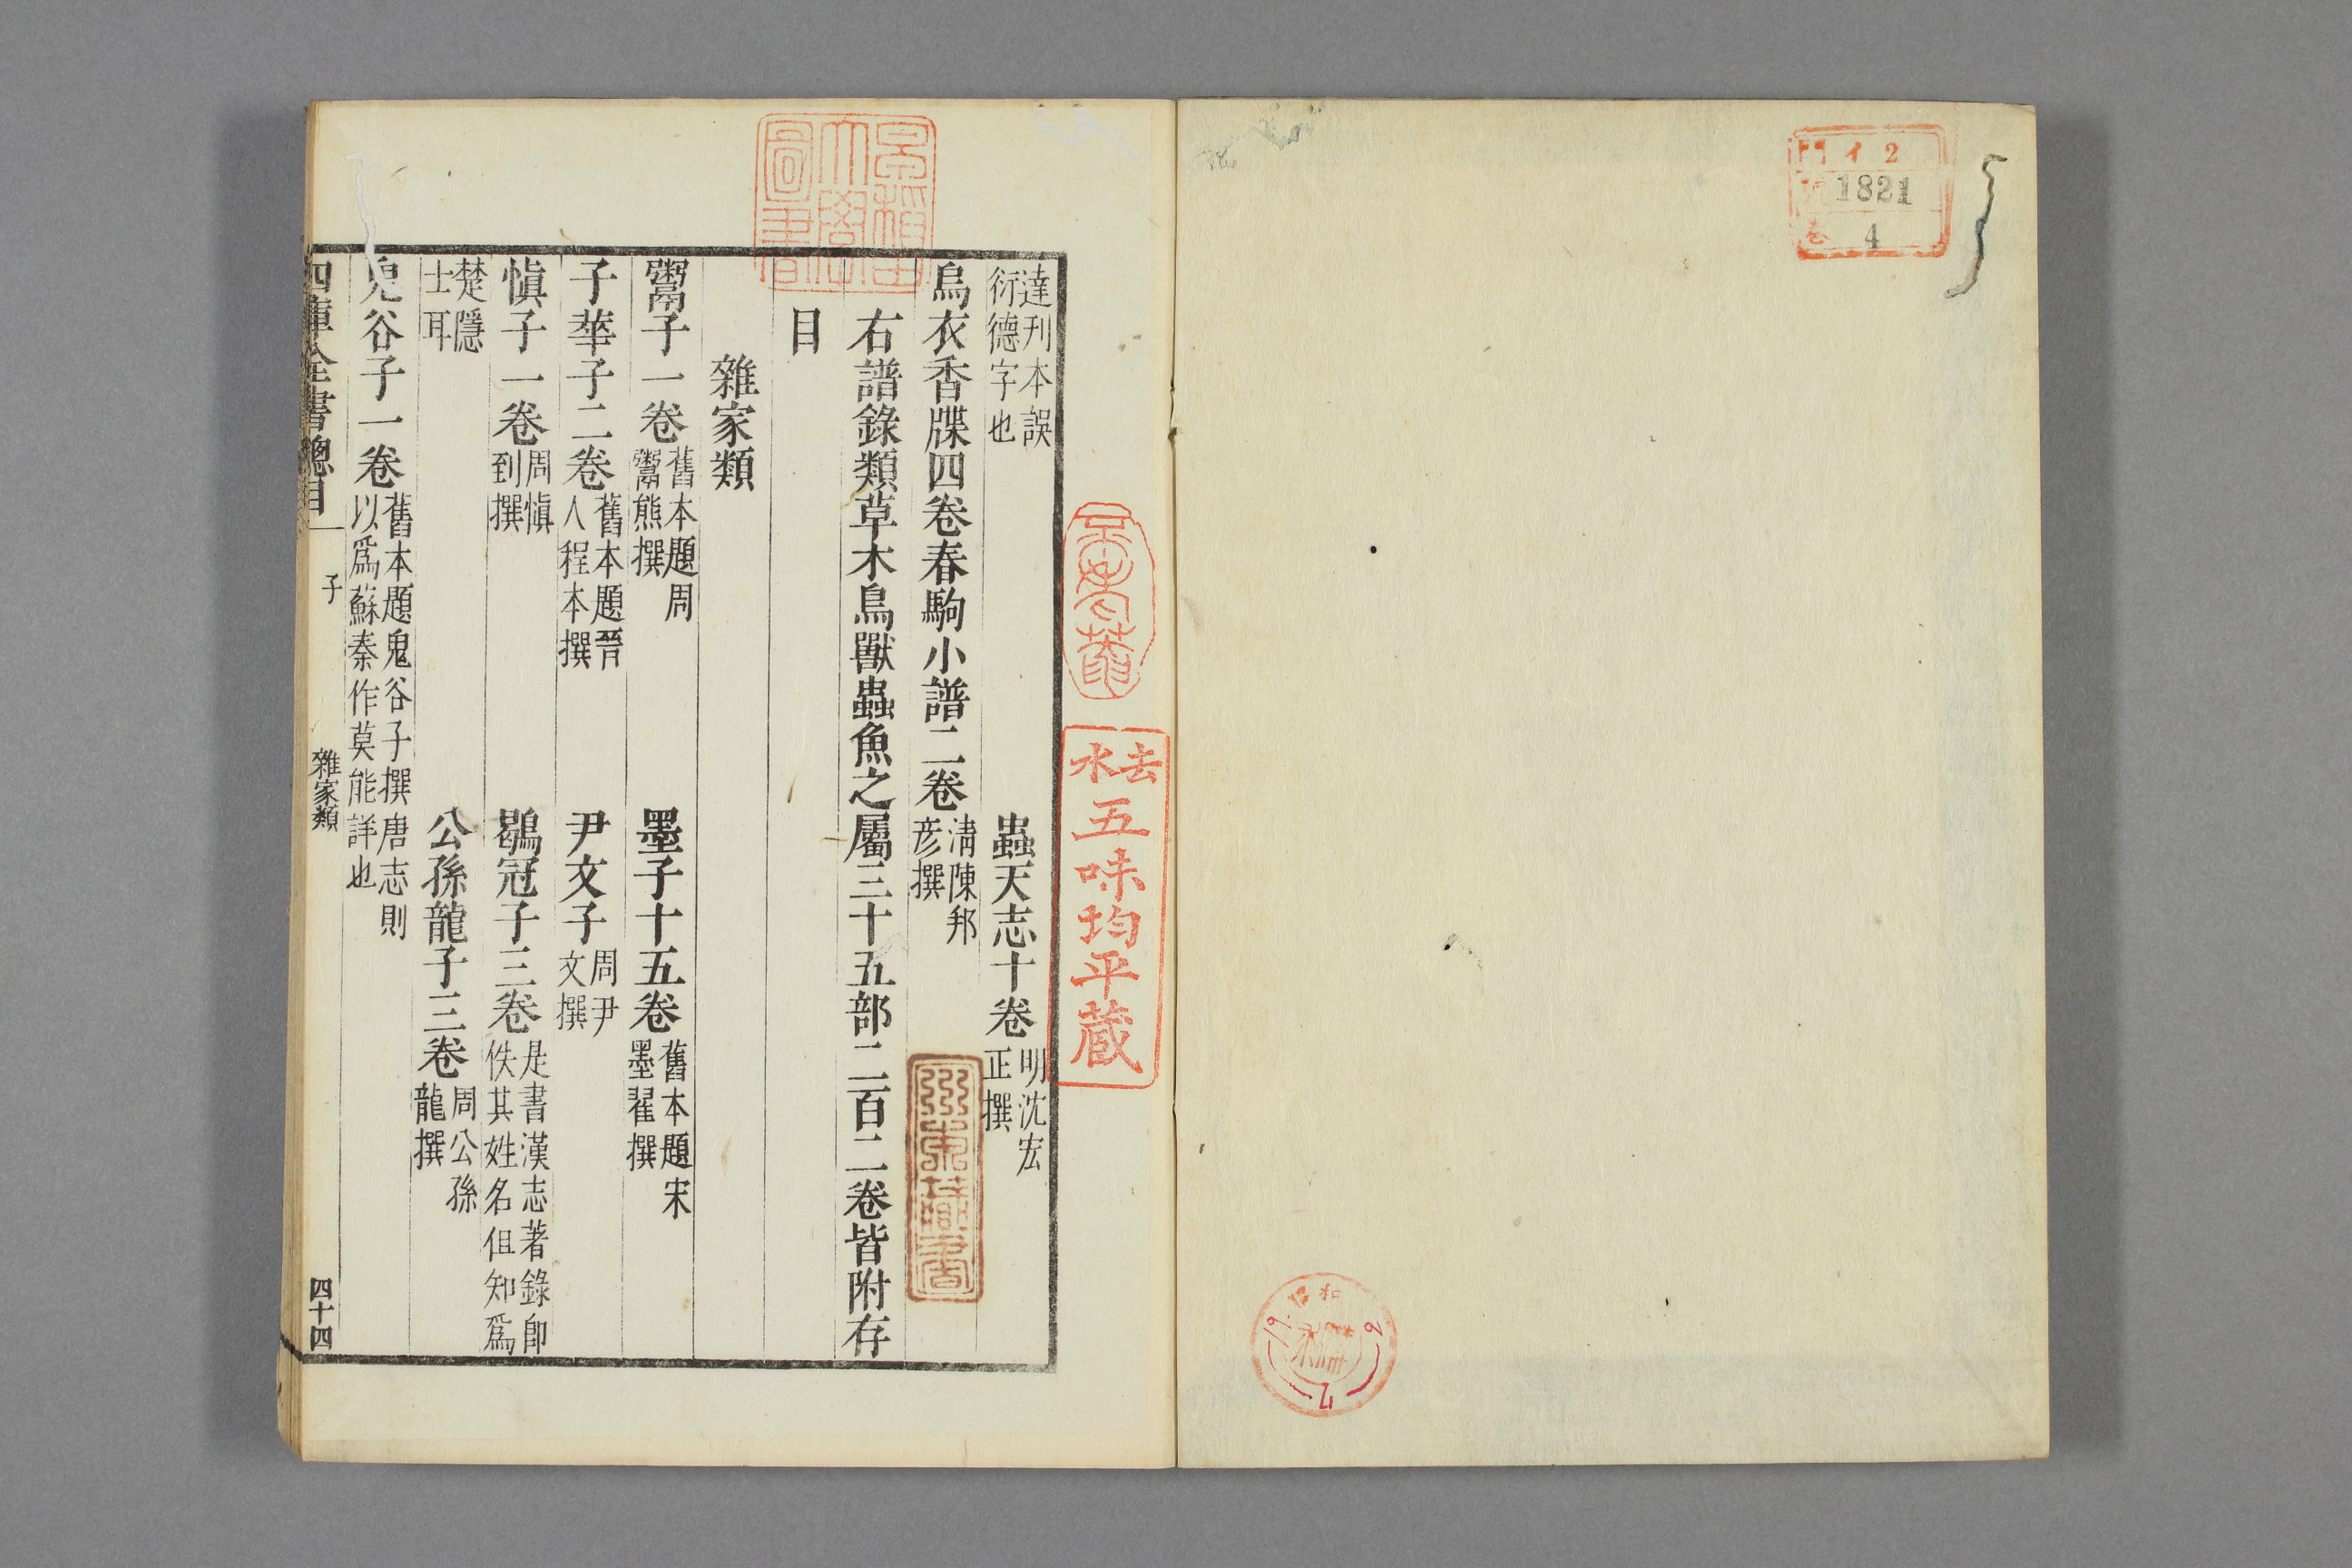 イ 2
1821
4
去水
五味均平蔵
早稲田大學圖書
達刊本誤
衍德字也
蟲天志十卷
明沈宏
正撰
烏衣香牒四卷春駒小譜二卷
淸陳邦
彦撰
右譜錄類草木鳥獸蟲魚之屬三十五部二百二卷皆附存
目
雜家類
鬻子一卷
舊本題周
鬻熊撰
墨子十五卷
舊本題宋
墨翟撰
子華子二卷
舊本題晉
人程本撰
尹文子
周尹
文撰
愼子一卷
周愼
到撰
鶡冠子三卷
是書漢志著錄卽
佚其姓名但知爲
楚隱
士耳
公孫龍子三卷
周公孫
龍撰
鬼谷子一卷
舊本題鬼谷子撰唐志則
以爲蘇秦作莫能詳也
四庫全書總目
子
雜家類
四十四